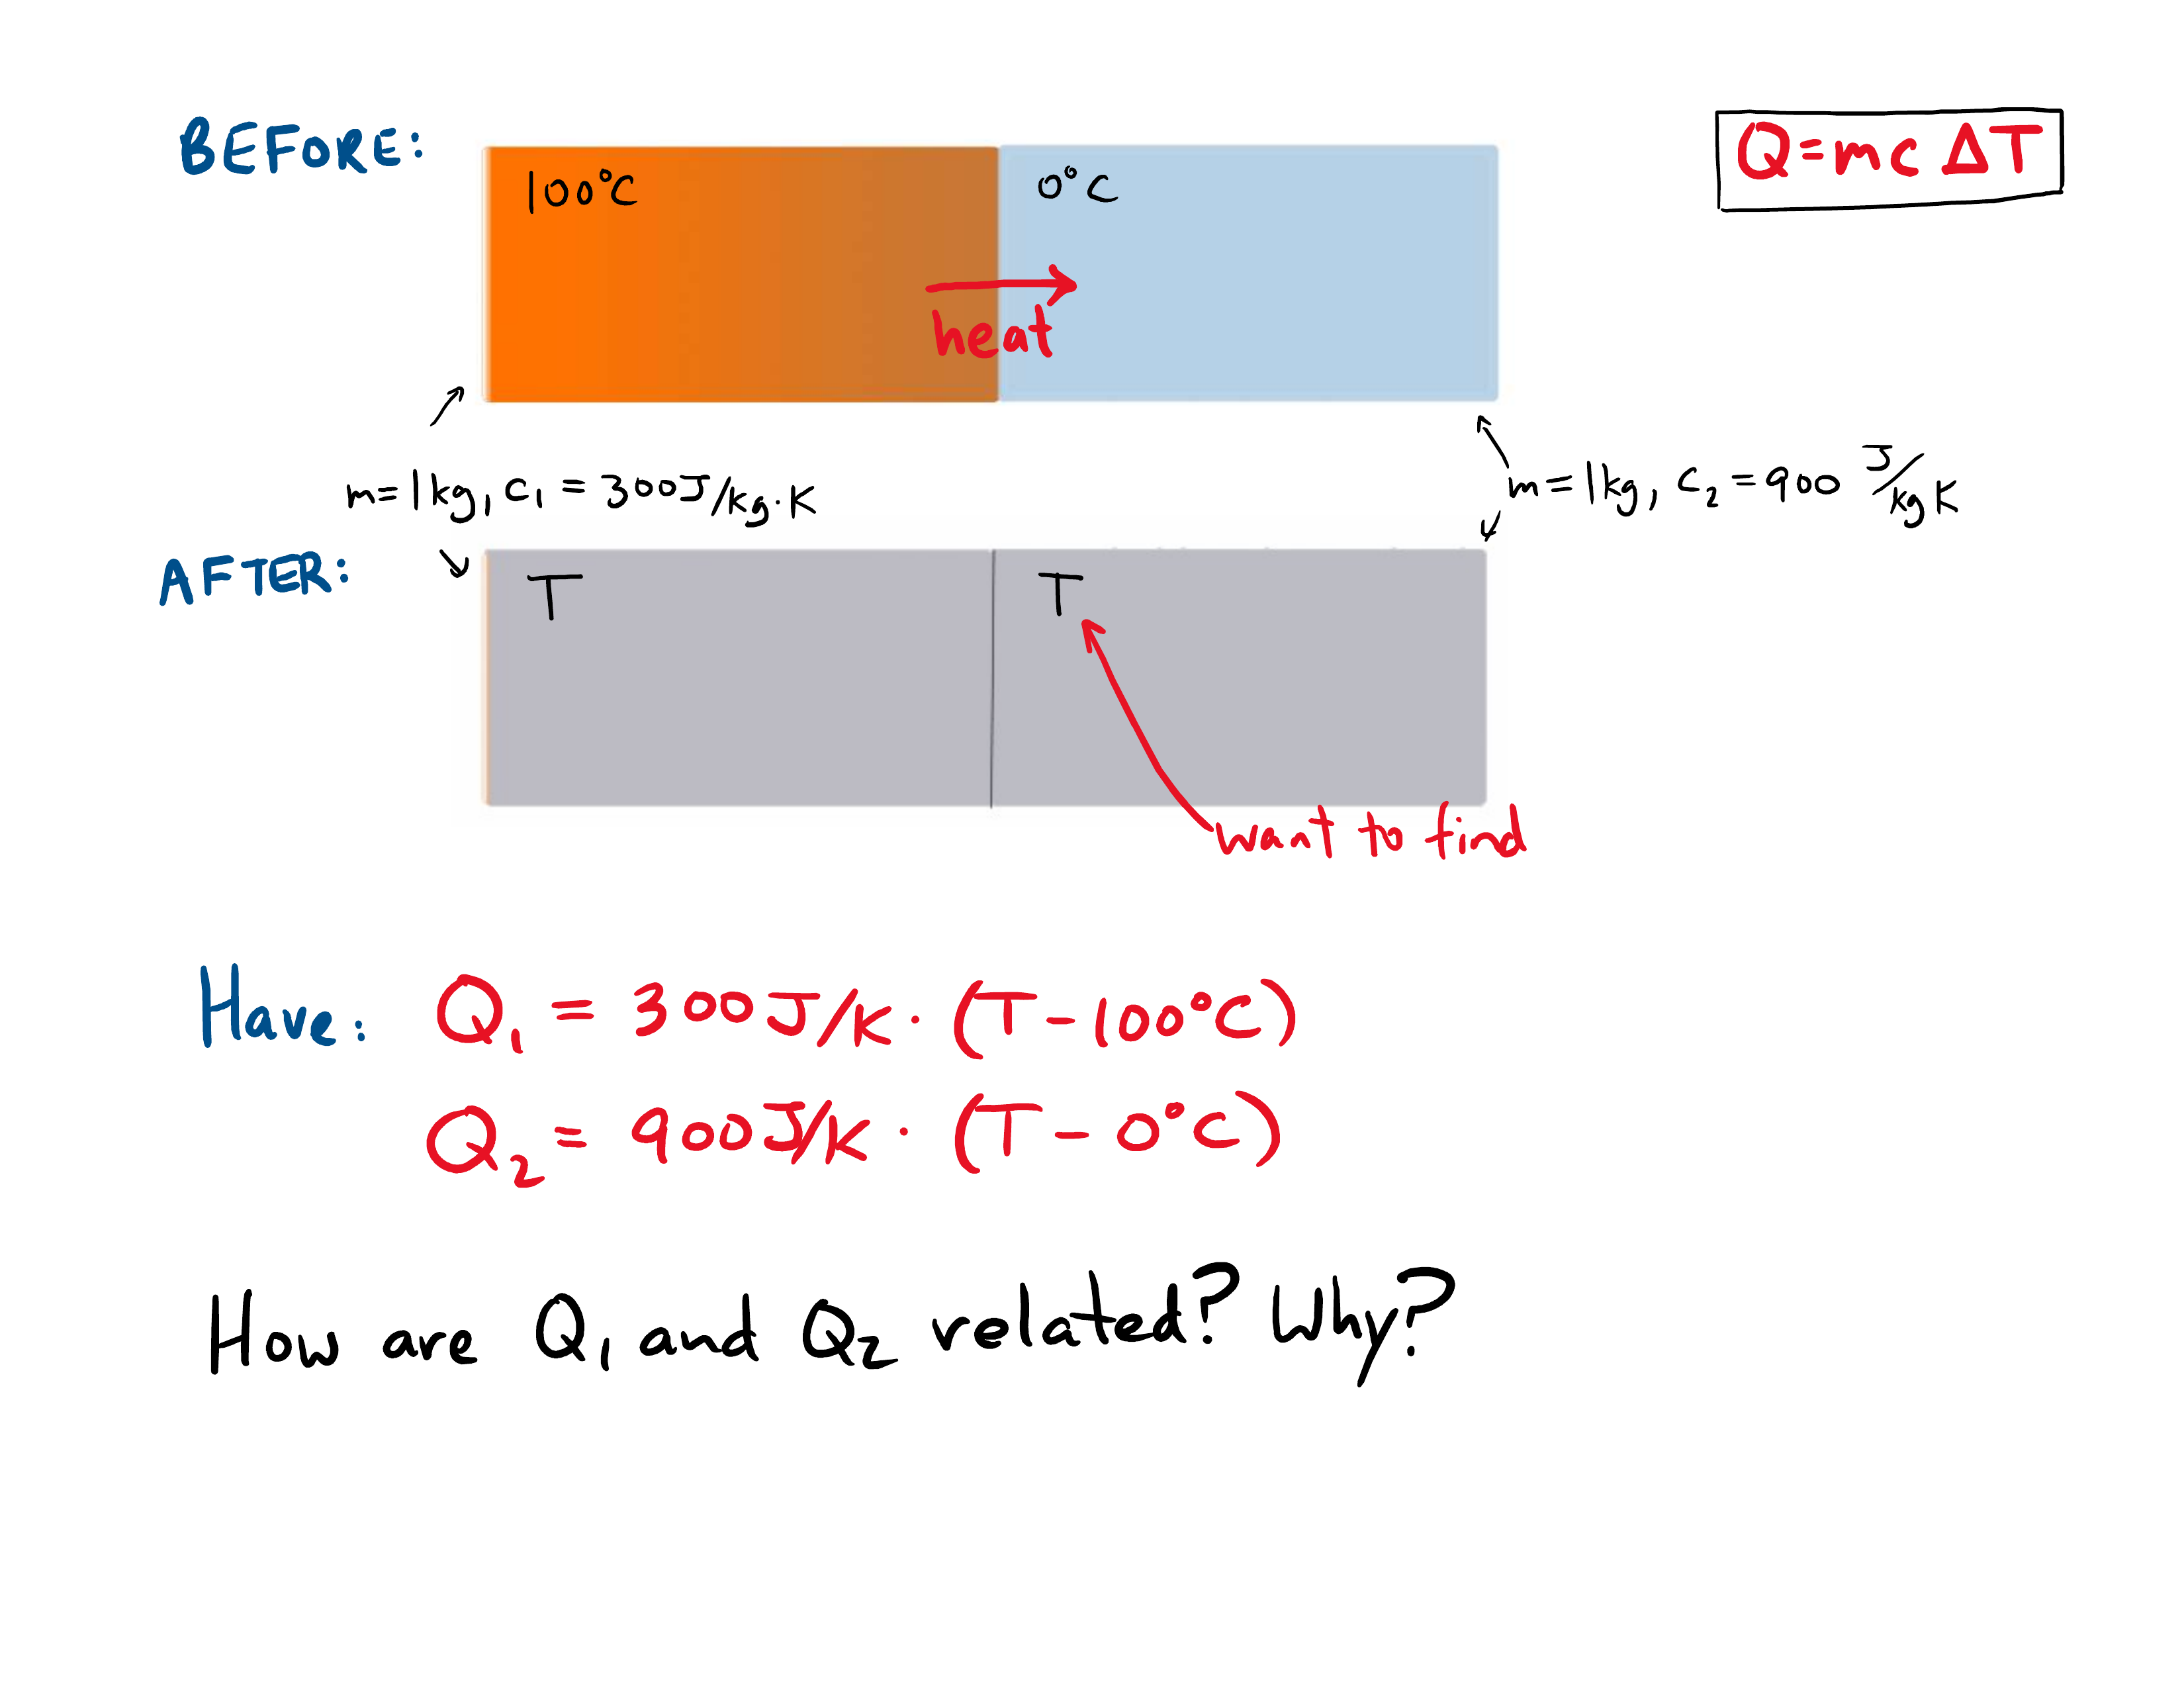 BEFORE:
100°C
0°C
Q=mcΔT
heat
m=1kg, c₁ = 300J/kg·K
m=1kg, c₂ = 900 J/kgK
AFTER:
T
T
want to find
Have: Q₁ = 300J/K · (T-100°C)
Q₂ = 900J/K · (T - 0°C)
How are Q₁ and Q₂ related? Why?